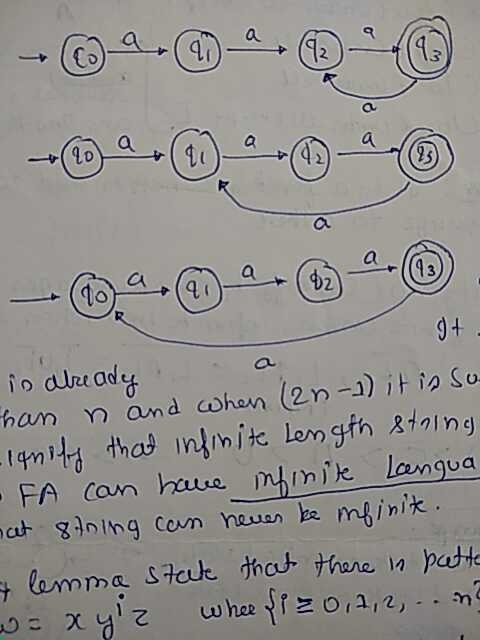 a a a
q0 q1 q2 q3
a
a a a
q0 q1 q2 q3
a
a a a
q0 q1 q2 q3
a
It
is already
than n and when (2n-1) it is
signify that infinite Length string
FA can have infinite
that string can never be infinite.
lemma state that there is
w = x yⁱ z whee {i ≥ 0, 1, 2, ... n